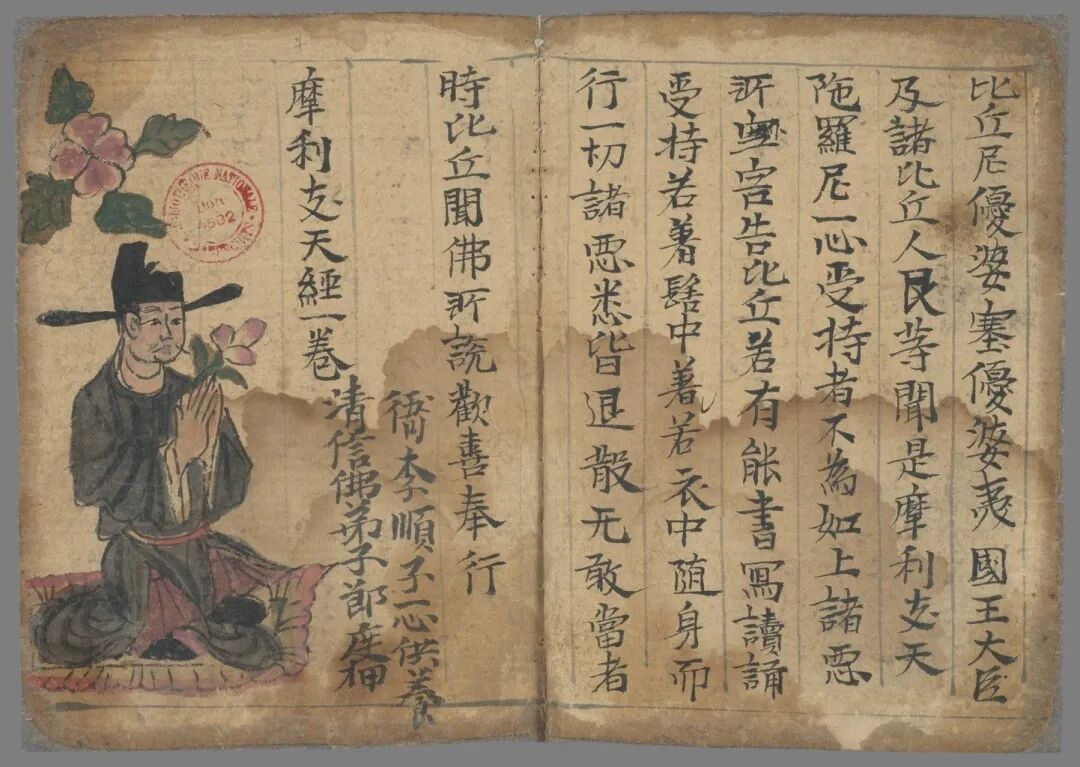 比丘尼優婆塞優婆夷國王大臣
及諸比丘人民等聞是摩利支天
陁羅尼一心受持者不為如上諸惡
所害告比丘若有能書寫讀誦
受持若著髻中著若衣中随身而
行一切諸惡悉皆退散无敢當者
時比丘聞佛所説歡喜奉行
摩利支天經一卷
清信佛弟子節度押
衙李順子一心供養
BIBLIOTHEQUE NATIONALE
DON
4502